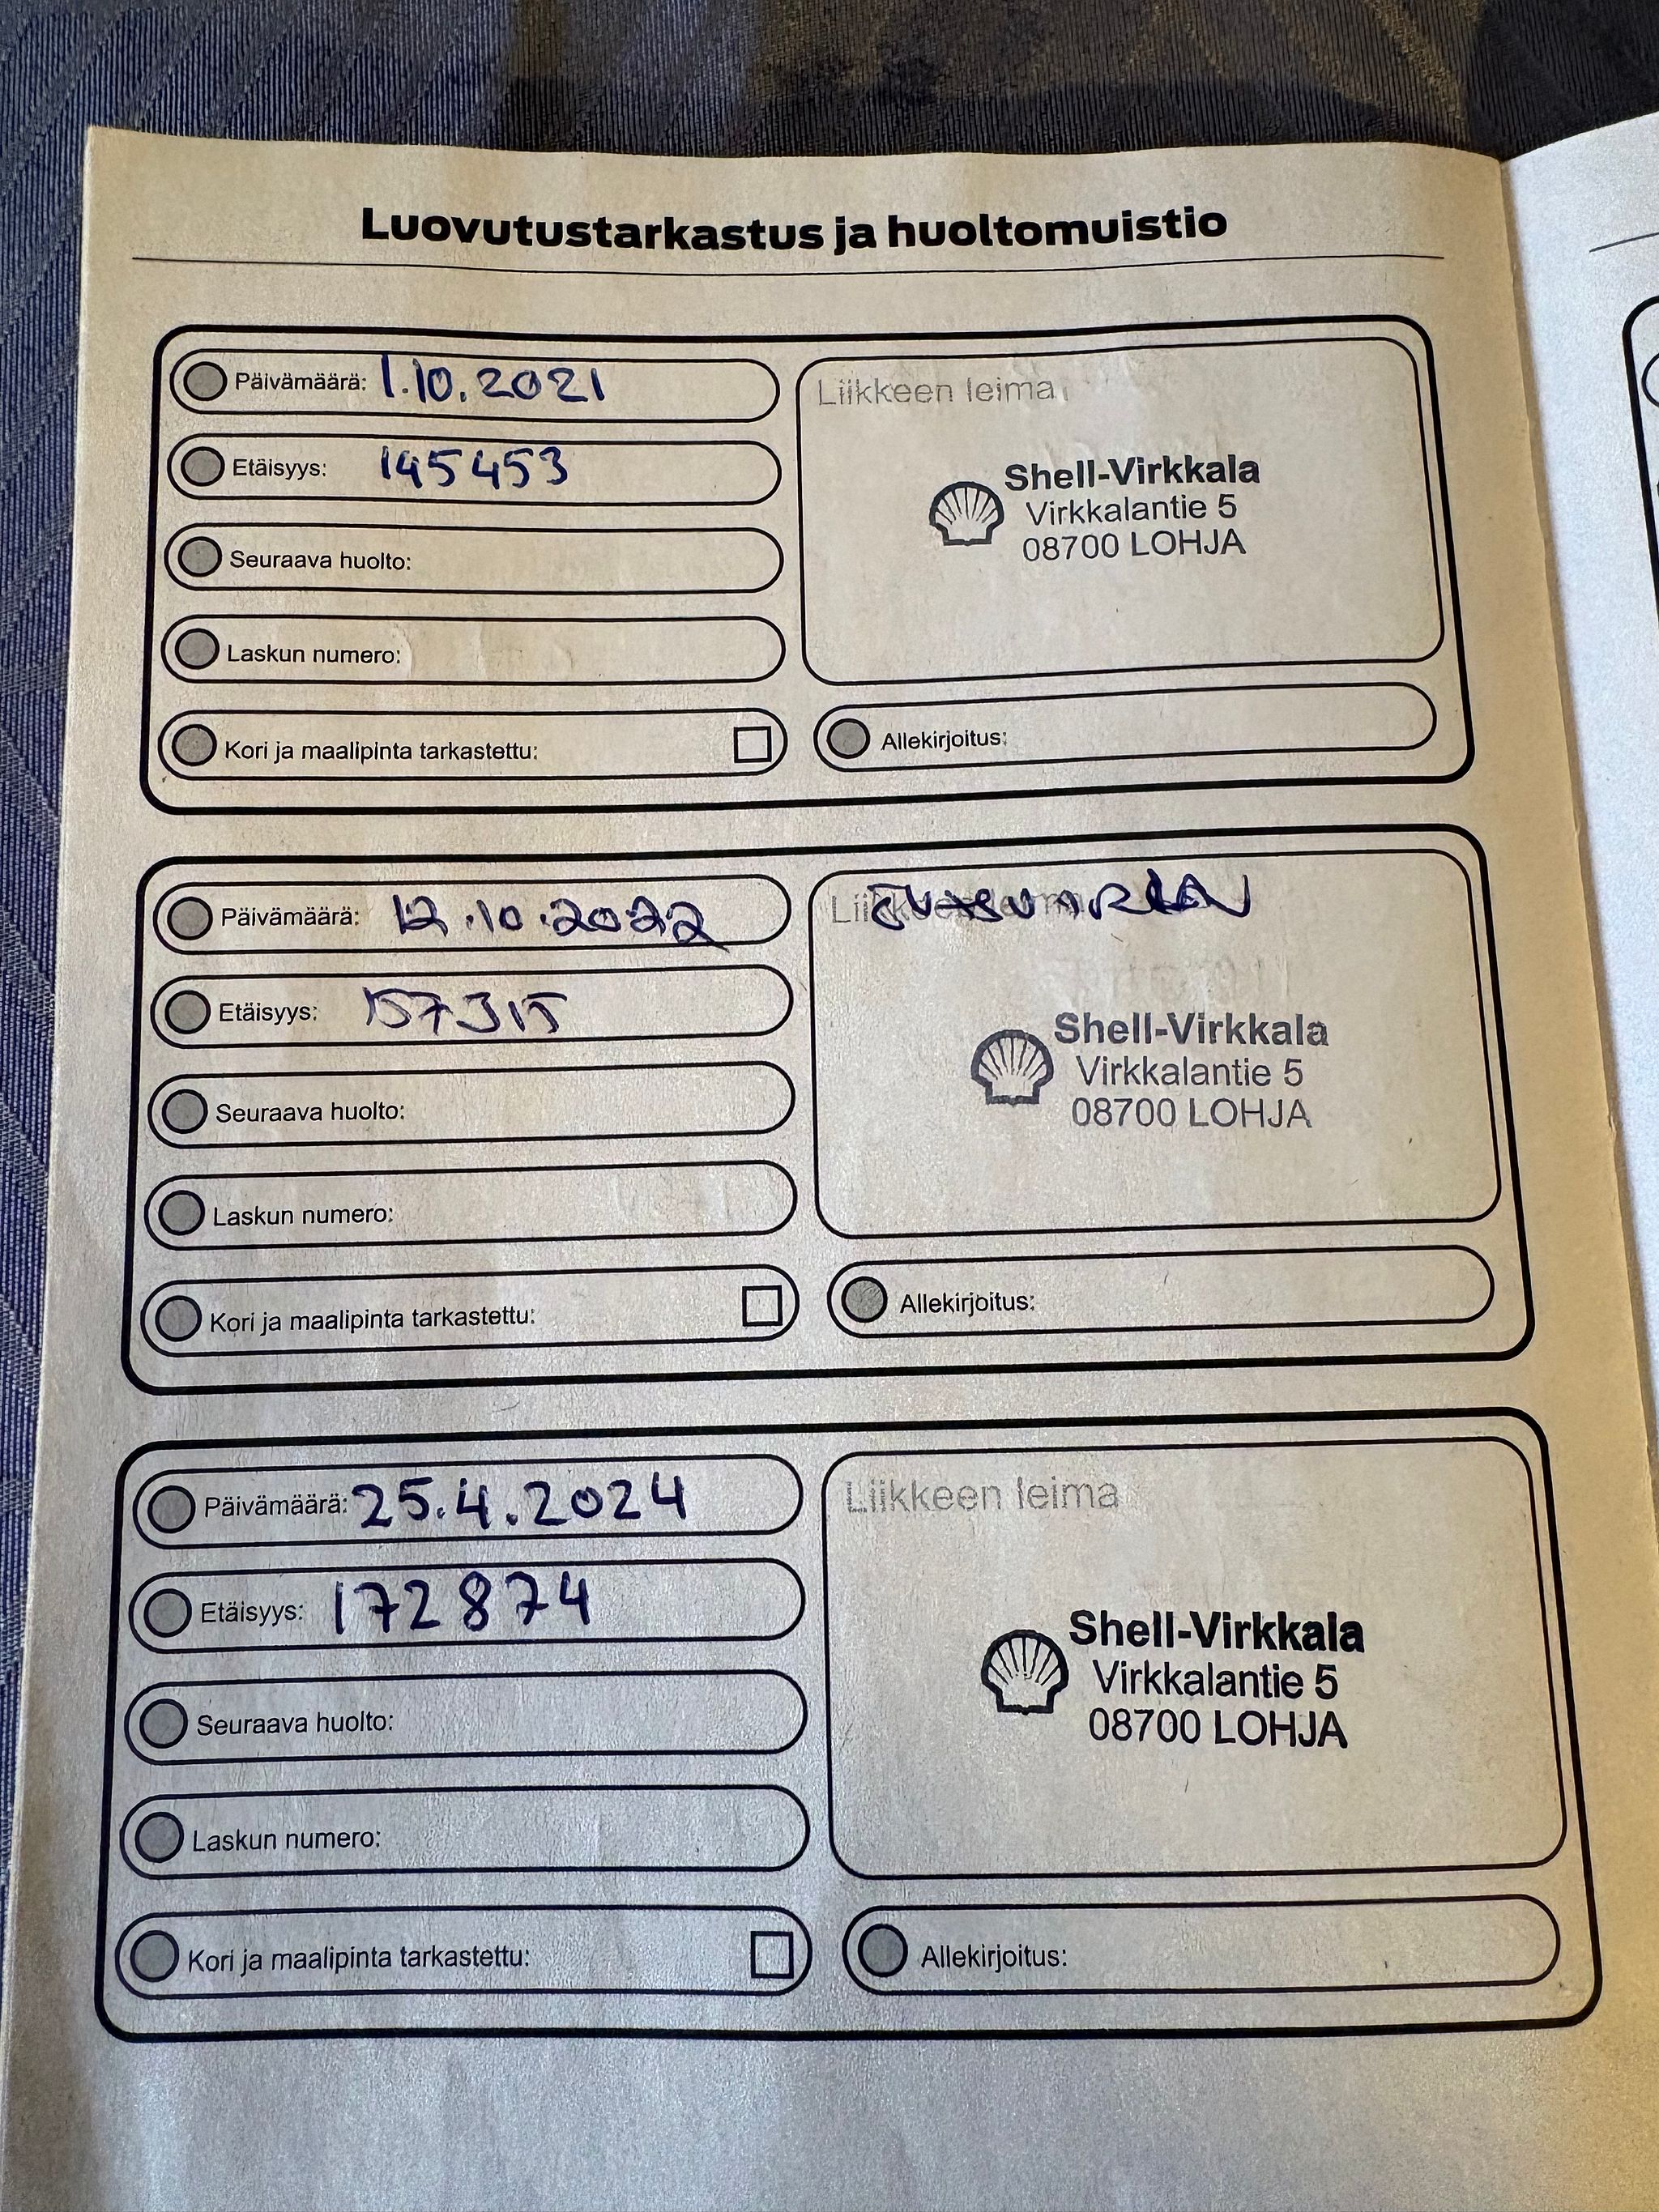 Luovutustarkastus ja huoltomuistio
Päivämäärä: 1.10.2021
Etäisyys: 145453
Seuraava huolto:
Laskun numero:
Kori ja maalipinta tarkastettu:
Liikkeen leima
Shell-Virkkala
Virkkalantie 5
08700 LOHJA
Allekirjoitus:
Päivämäärä: 12.10.2022
Etäisyys: 157315
Seuraava huolto:
Laskun numero:
Kori ja maalipinta tarkastettu:
Liikkeen leima
Shell-Virkkala
Virkkalantie 5
08700 LOHJA
Allekirjoitus:
Päivämäärä: 25.4.2024
Etäisyys: 172874
Seuraava huolto:
Laskun numero:
Kori ja maalipinta tarkastettu:
Liikkeen leima
Shell-Virkkala
Virkkalantie 5
08700 LOHJA
Allekirjoitus: